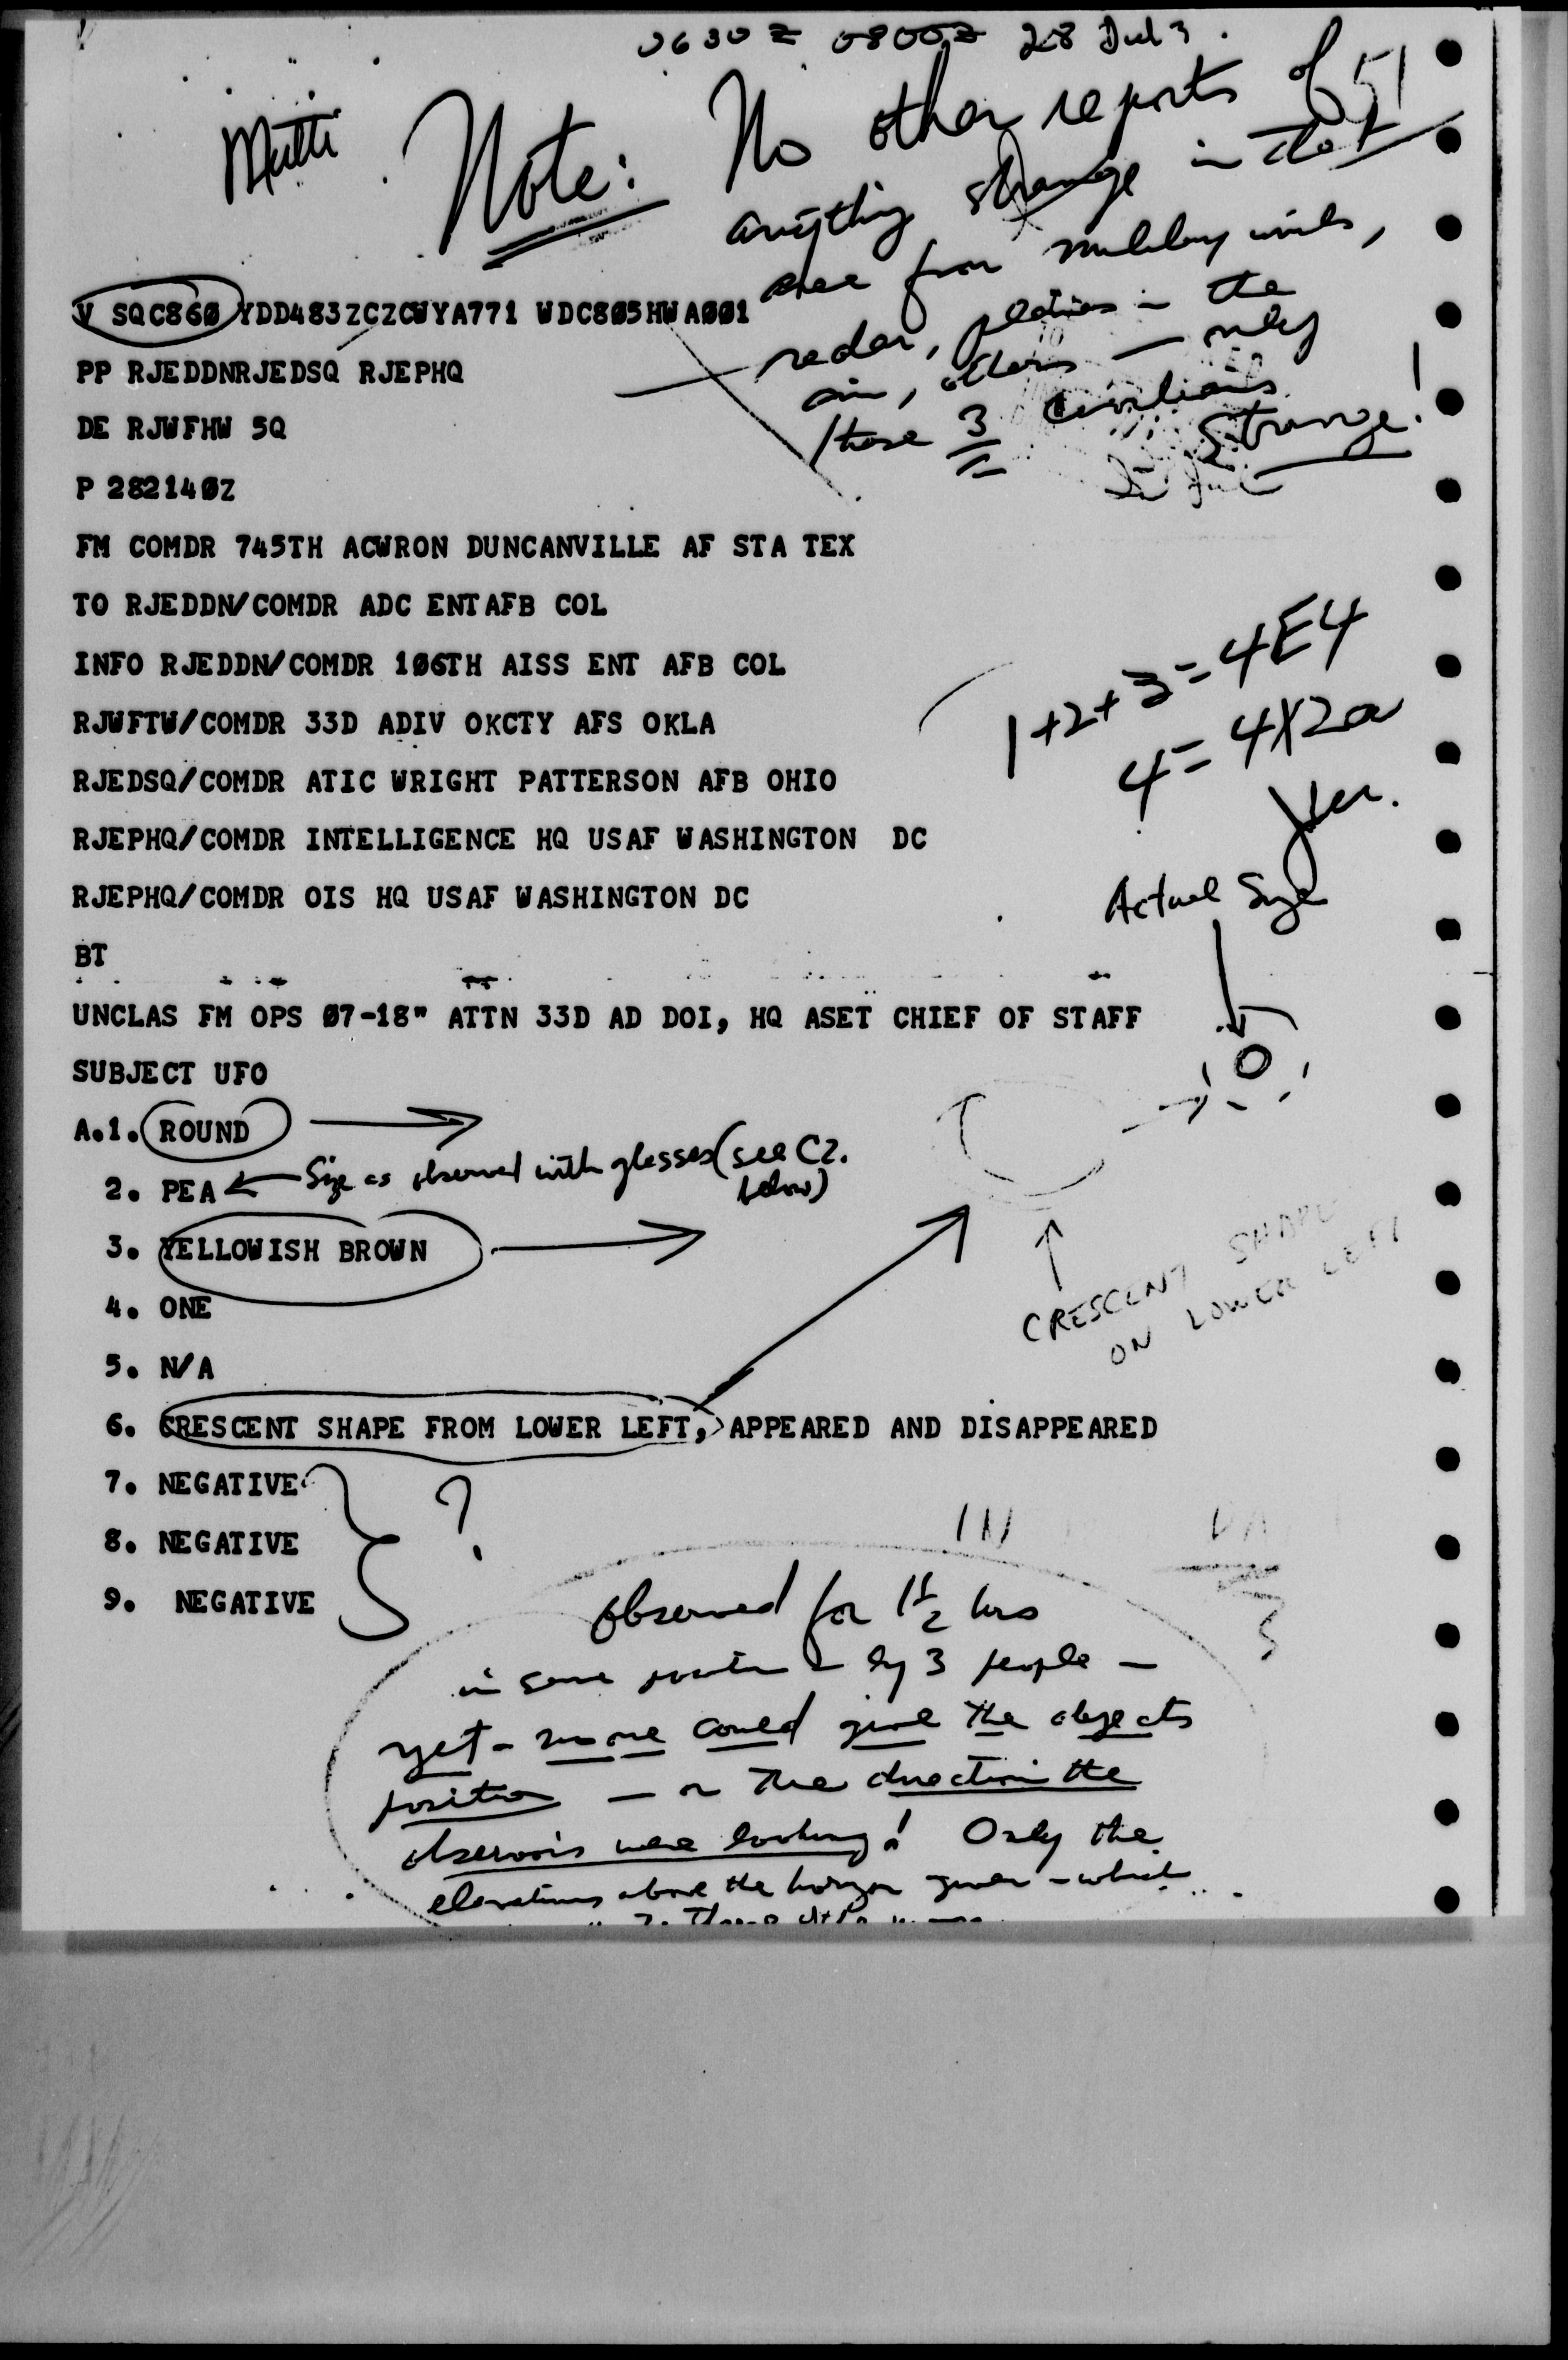 0630 Z 0800Z 28 Jul 3.
Multi
Note: No other reports of
anything strange in that
area from military units,
radar, in the
air, others — only
those 3 civilians
Strange!
V SQC860 YDD483ZCZCWYA771 WDC805HWA001
PP RJEDDNRJEDSQ RJEPHQ
DE RJWFHW 5Q
P 282140Z
FM COMDR 745TH ACWRON DUNCANVILLE AF STA TEX
TO RJEDDN/COMDR ADC ENTAFB COL
INFO RJEDDN/COMDR 106TH AISS ENT AFB COL
RJWFTW/COMDR 33D ADIV OKCTY AFS OKLA
RJEDSQ/COMDR ATIC WRIGHT PATTERSON AFB OHIO
RJEPHQ/COMDR INTELLIGENCE HQ USAF WASHINGTON DC
RJEPHQ/COMDR OIS HQ USAF WASHINGTON DC
BT
1+2+3=4E4
4=4X2a
Actual Size
UNCLAS FM OPS 07-18" ATTN 33D AD DOI, HQ ASET CHIEF OF STAFF
SUBJECT UFO
A.1. ROUND
2. PEA Size as observed with glasses (see C2.
below)
3. YELLOWISH BROWN
CRESCENT SHAPE
ON LOWER LEFT
4. ONE
5. N/A
6. CRESCENT SHAPE FROM LOWER LEFT, APPEARED AND DISAPPEARED
7. NEGATIVE
?
8. NEGATIVE
9. NEGATIVE
Observed for 1½ hrs
in same position by 3 people —
yet - none could give the objects
position — or the direction the
observers were looking! Only the
elevations above the horizon given - which